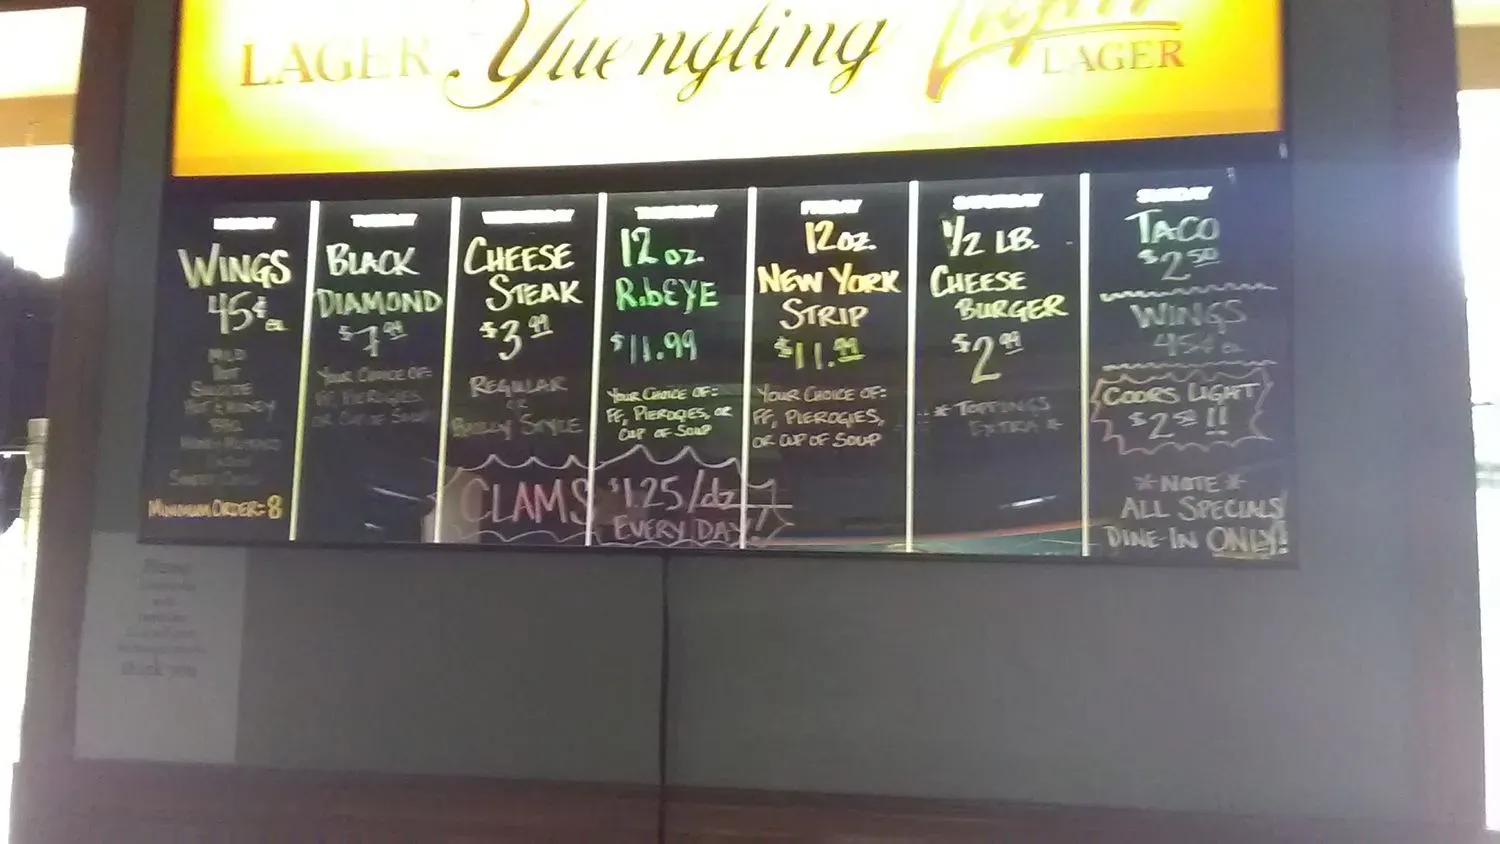 LAGER Yuengling Light LAGER
MONDAY
WINGS
45¢ ea
MILD
HOT
SUICIDE
HOT & HONEY
BBQ
HONEY MUSTARD
MINIMUM ORDER=8
TUESDAY
BLACK
DIAMOND
$7.99
YOUR CHOICE OF:
FF, PIEROGIES
OR CUP OF SOUP
WEDNESDAY
CHEESE
STEAK
$3.99
REGULAR
OR
STYLE
THURSDAY
12 oz.
RibEYE
$11.99
YOUR CHOICE OF:
FF, PIEROGIES, OR
CUP OF SOUP
CLAMS $1.25/dz
EVERY DAY!
FRIDAY
12 oz.
NEW YORK
STRIP
$11.99
YOUR CHOICE OF:
FF, PIEROGIES,
OR CUP OF SOUP
SATURDAY
1/2 LB.
CHEESE
BURGER
$2.99
*TOPPINGS
EXTRA*
SUNDAY
TACO
$2.50
WINGS
45¢ ea
COORS LIGHT
$2.50!!
*NOTE*
ALL SPECIALS
DINE-IN ONLY!
thank you